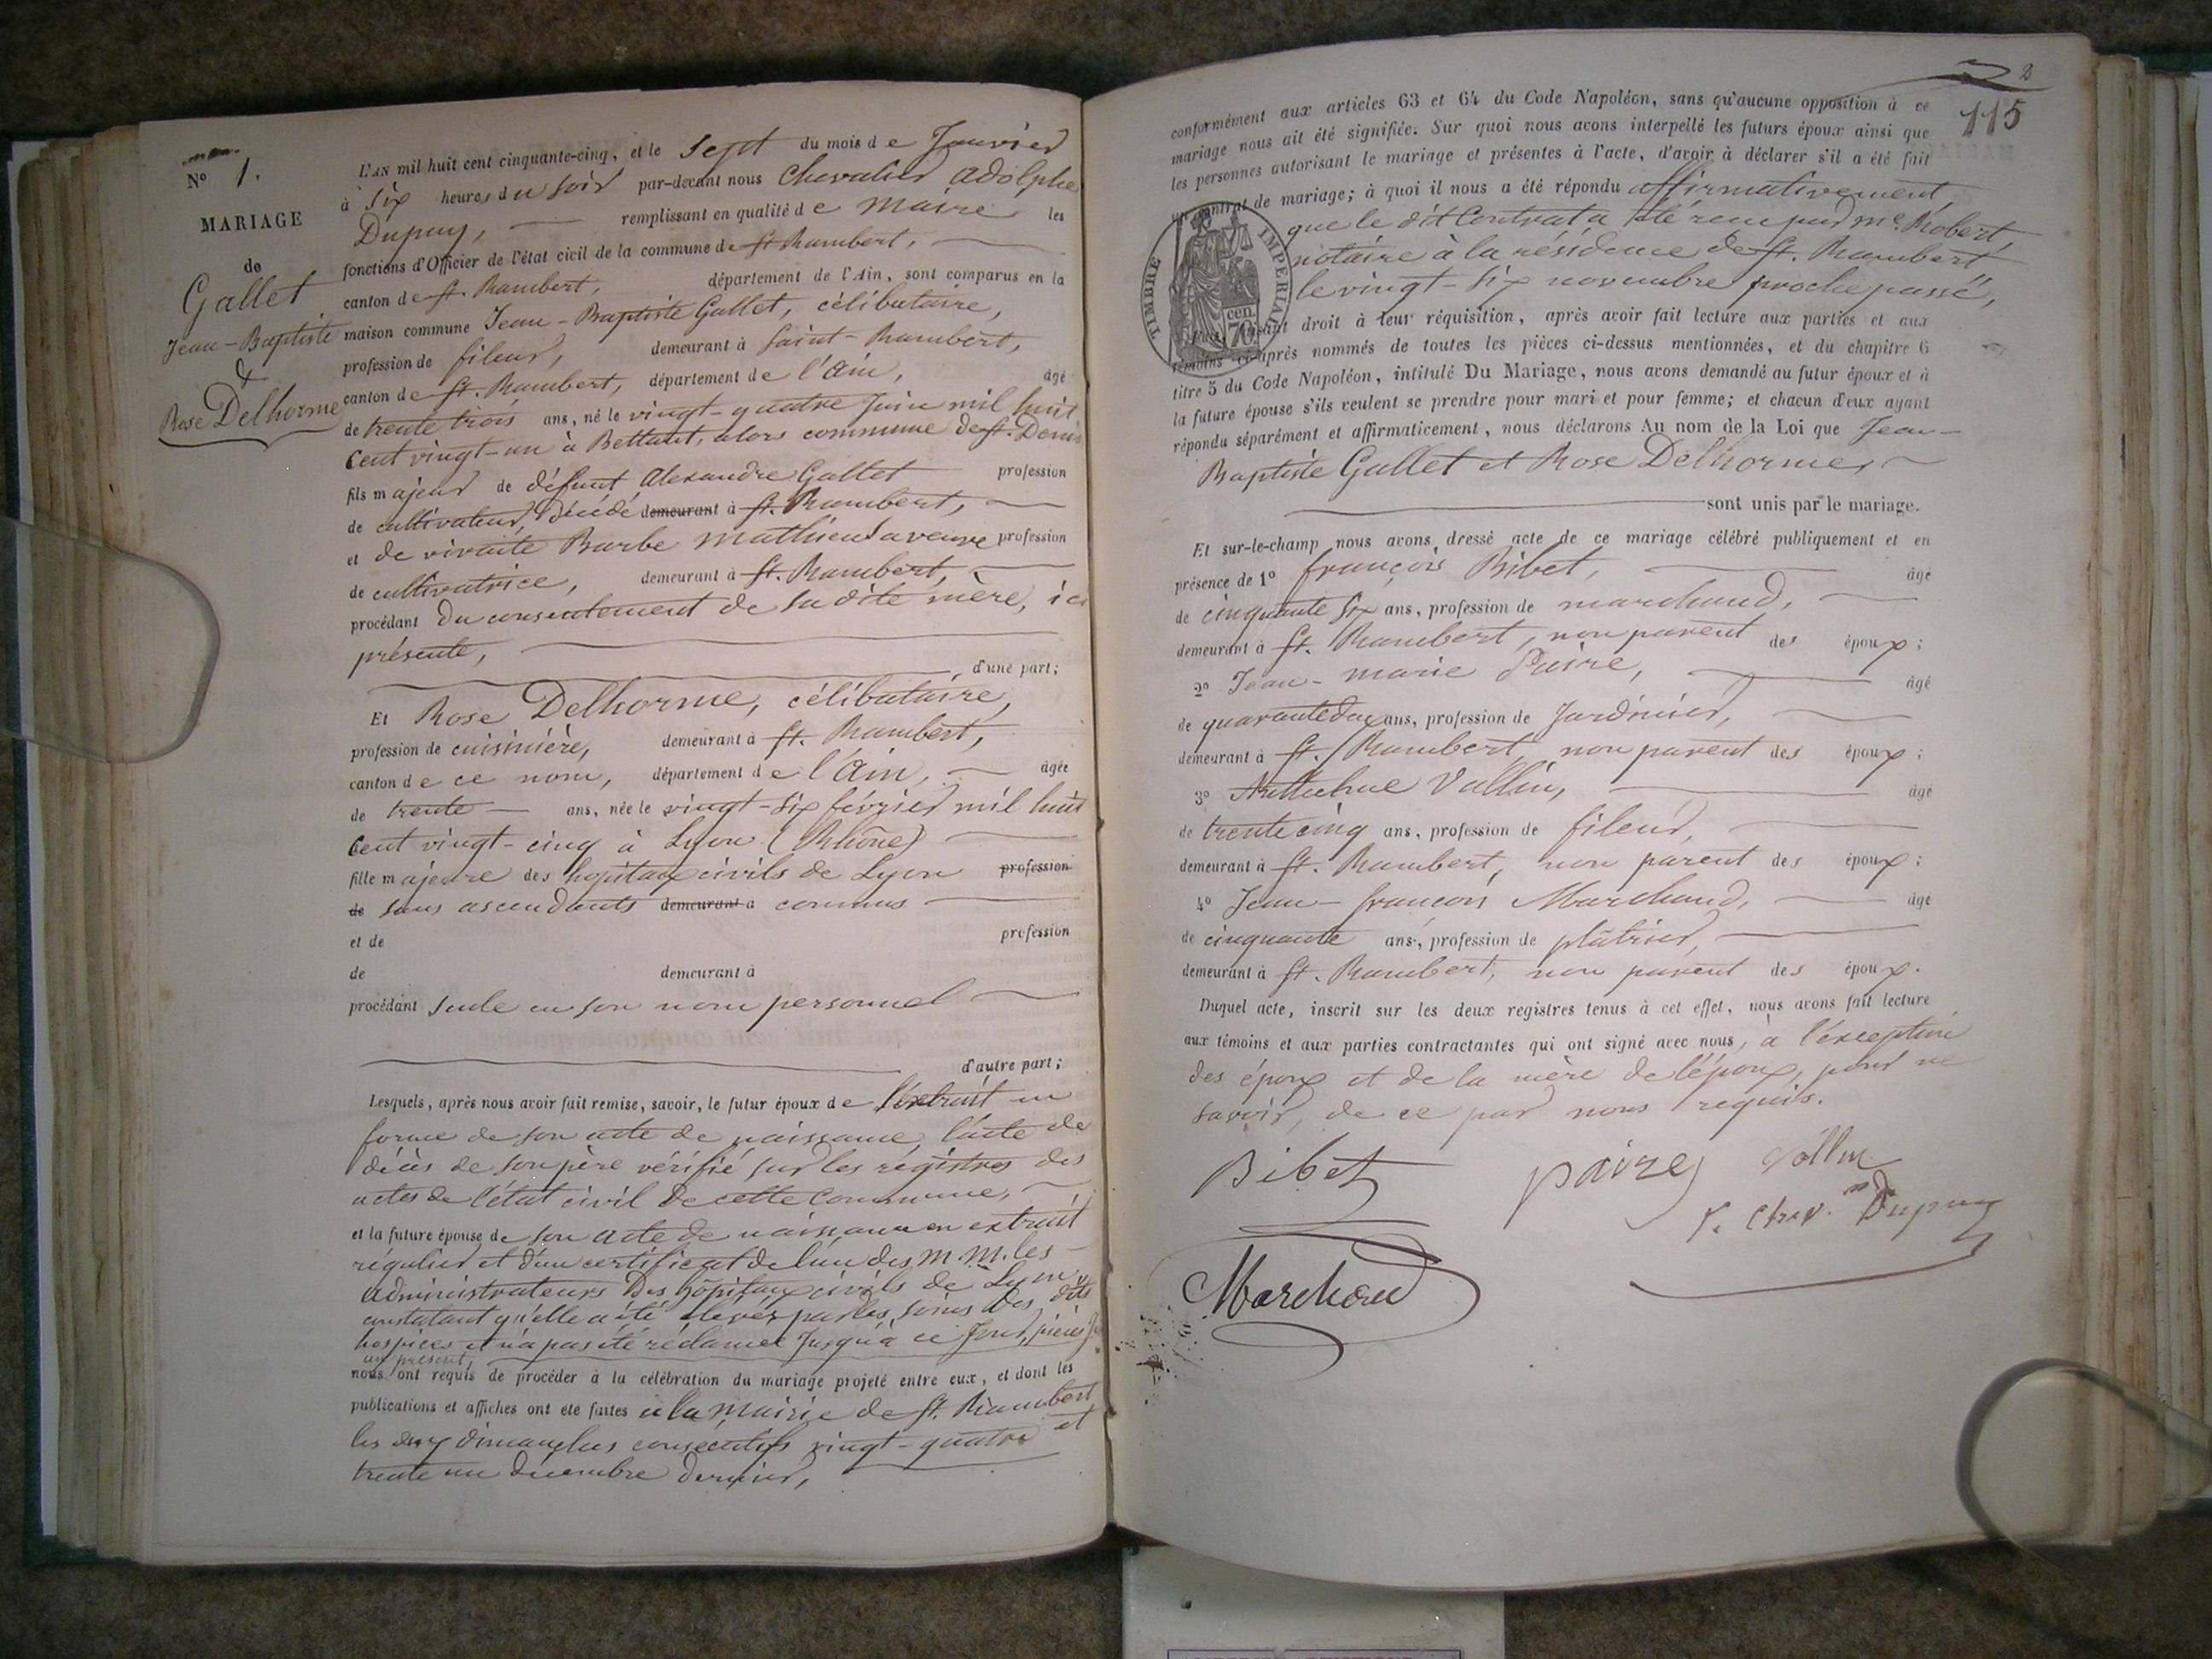 N° 1.
MARIAGE
de
Gallet
Jean-Baptiste
&
Rose Delhorme
L'AN mil huit cent cinquante-cinq, et le sept du mois de Janvier
à six heures du soir par-devant nous Chevalier Adolphe
Dupuy, remplissant en qualité de maire les
fonctions d'Officier de l'état civil de la commune de St. Rambert,
canton de St. Rambert, département de l'Ain, sont comparus en la
maison commune Jean-Baptiste Gallet, célibataire,
profession de fileur, demeurant à Saint-Rambert,
canton de St. Rambert, département de l'Ain, âgé
de trente trois ans, né le vingt-quatre Juin mil huit
cent vingt-un à Bettant, alors commune de St. Denis
fils majeur de défunt Alexandre Gallet profession
de cultivateur, décédé demeurant à St. Rambert,
et de vivante Barbe Mathieu sa veuve profession
de cultivatrice, demeurant à St. Rambert,
procédant du consentement de sa dite mère, ici
présente,
d'une part;
Et Rose Delhorme, célibataire,
profession de cuisinière, demeurant à St. Rambert,
canton de ce nom, département de l'Ain, âgée
de trente ans, née le vingt-six février mil huit
cent vingt-cinq à Lyon (Rhône)
fille majeure des hopitaux civils de Lyon profession
de sans ascendants demeurant à connus
et de profession
de demeurant à
procédant seule en son nom personnel
d'autre part;
Lesquels, après nous avoir fait remise, savoir, le futur époux de l'extrait en
forme de son acte de naissance, l'acte de
décès de son père vérifié sur les régistres des
actes de l'état civil de cette commune,
et la future épouse de son acte de naissance en extrait
régulier et d'un certificat de l'un des M.M. les
administrateurs des hôpitaux civils de Lyon,
constatant qu'elle a été élevée par les soins des dits
hospices et n'a pas été réclamée jusqu'à ce jour,
nous ont requis de procéder à la célébration du mariage projeté entre eux, et dont les
publications et affiches ont été faites à la Mairie de St. Rambert
les deux dimanches consécutifs vingt-quatre et
trente un décembre dernier,
2
115
conformément aux articles 63 et 64 du Code Napoléon, sans qu'aucune opposition à ce
mariage nous ait été signifiée. Sur quoi nous avons interpellé les futurs époux ainsi que
les personnes autorisant le mariage et présentes à l'acte, d'avoir à déclarer s'il a été fait
un contrat de mariage; à quoi il nous a été répondu affirmativement,
que le dit Contrat a été reçu par Me. Robert,
notaire à la résidence de St. Rambert
le vingt-six novembre proche passé,
TIMBRE IMPERIAL
70 cen.
droit à leur réquisition, après avoir fait lecture aux parties et aux
témoins ci-après nommés de toutes les pièces ci-dessus mentionnées, et du chapitre 6
titre 5 du Code Napoléon, intitulé Du Mariage, nous avons demandé au futur époux et à
la future épouse s'ils veulent se prendre pour mari et pour femme; et chacun d'eux ayant
répondu séparément et affirmativement, nous déclarons Au nom de la Loi que Jean-
Baptiste Gallet et Rose Delhorme,
sont unis par le mariage.
Et sur-le-champ nous avons dressé acte de ce mariage célébré publiquement et en
présence de 1° françois Bibet, âgé
de cinquante six ans, profession de marchand,
demeurant à St. Rambert, non parent des époux;
2° Jean-Marie Paire, âgé
de quarante deux ans, profession de Jardinier,
demeurant à St. Rambert, non parent des époux;
3° Anthelme Vallin, âgé
de trente cinq ans, profession de fileur,
demeurant à St. Rambert, non parent des époux;
4° Jean-françois Marchand, âgé
de cinquante ans, profession de plâtrier,
demeurant à St. Rambert, non parent des époux.
Duquel acte, inscrit sur les deux registres tenus à cet effet, nous avons fait lecture
aux témoins et aux parties contractantes qui ont signé avec nous, à l'exception
des époux et de la mère de l'époux, pour ne
savoir, de ce par nous requis.
Bibet paire Vallin
Chev. Dupuy
Marchand